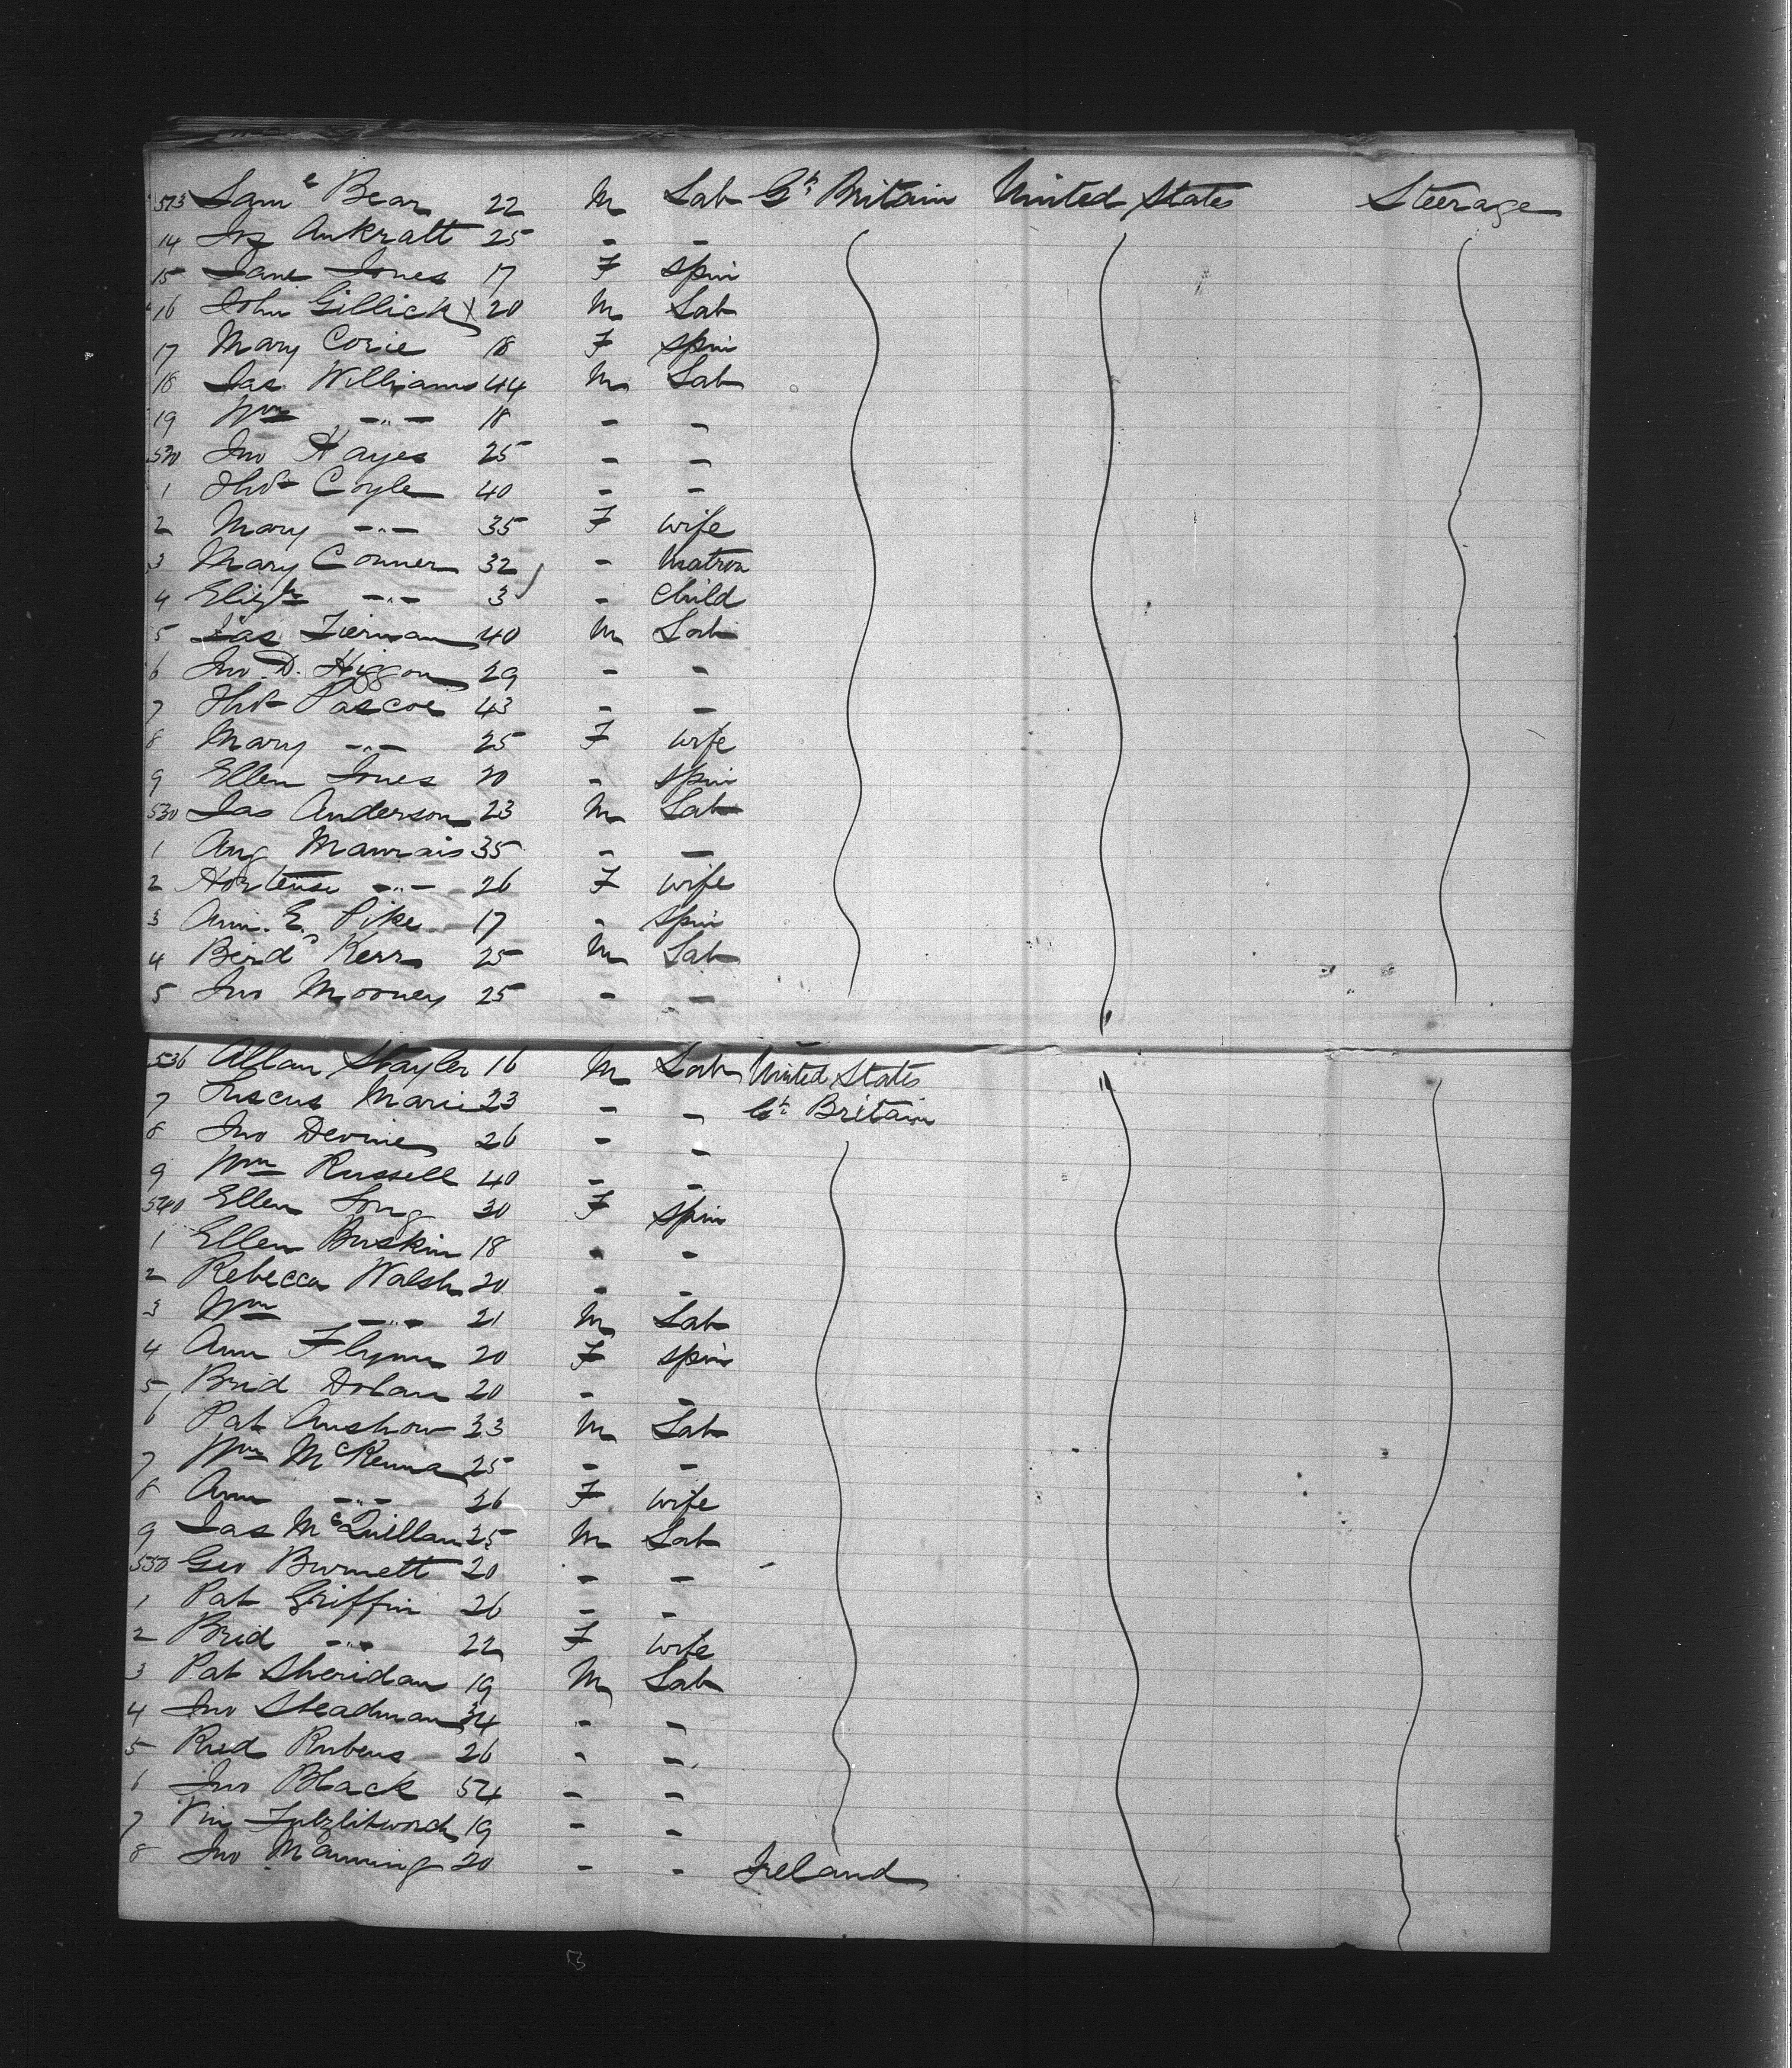 513 Saml Bear 22 M Lab Gt Britain United States Steerage
14 Jos Ankratt 25 - -
15 Jane Jones 17 F Spin
16 John Gillick X 20 M Lab
17 Mary Corie 18 F Spin
18 Jas Williams 44 M Lab
19 Wm -"- 18 - -
520 Jno Hayes 25 - -
1 Thos Coyle 40 - -
2 Mary -"- 35 F Wife
3 Mary Conner 32 - Matron
4 Elizth -"- 3 - Child
5 Jas Tiernan 40 M Lab
6 Jno D. Higgon 29 - -
7 Thos Pascoe 43 - -
8 Mary -"- 25 F Wife
9 Ellen Jones 20 - Spin
530 Jas Anderson 23 M Lab
1 Aug Mawrais 35 - -
2 Hortense -"- 26 F Wife
3 Ann. E. Pike 17 - Spin
4 Berd Kerr 25 M Lab
5 Jno Mooney 25 - -
536 Allan Stayler 16 M Lab United States
7 Marie 23 - - Gt Britain
8 Jno Devine 26 - -
9 Wm Russell 40 - -
540 Ellen Long 30 F Spin
1 Ellen Buskin 18 - -
2 Rebecca Walsh 20 - -
3 Wm -"- 21 M Lab
4 Ann Flynn 20 F Spin
5 Brid Dolan 20 - -
6 Pat Anshow 23 M Lab
7 Wm McKenna 25 - -
8 Ann -"- 26 F Wife
9 Jas McQuillan 25 M Lab
550 Geo Burnett 20 - -
1 Pat Griffin 26 - -
2 Brid -"- 22 F Wife
3 Pat Sheridan 19 M Lab
4 Jno Steadman 34 - -
5 Rubens 26 - -
6 Jno Black 54 - -
7 19 - -
8 Jno Manning 20 - - Ireland